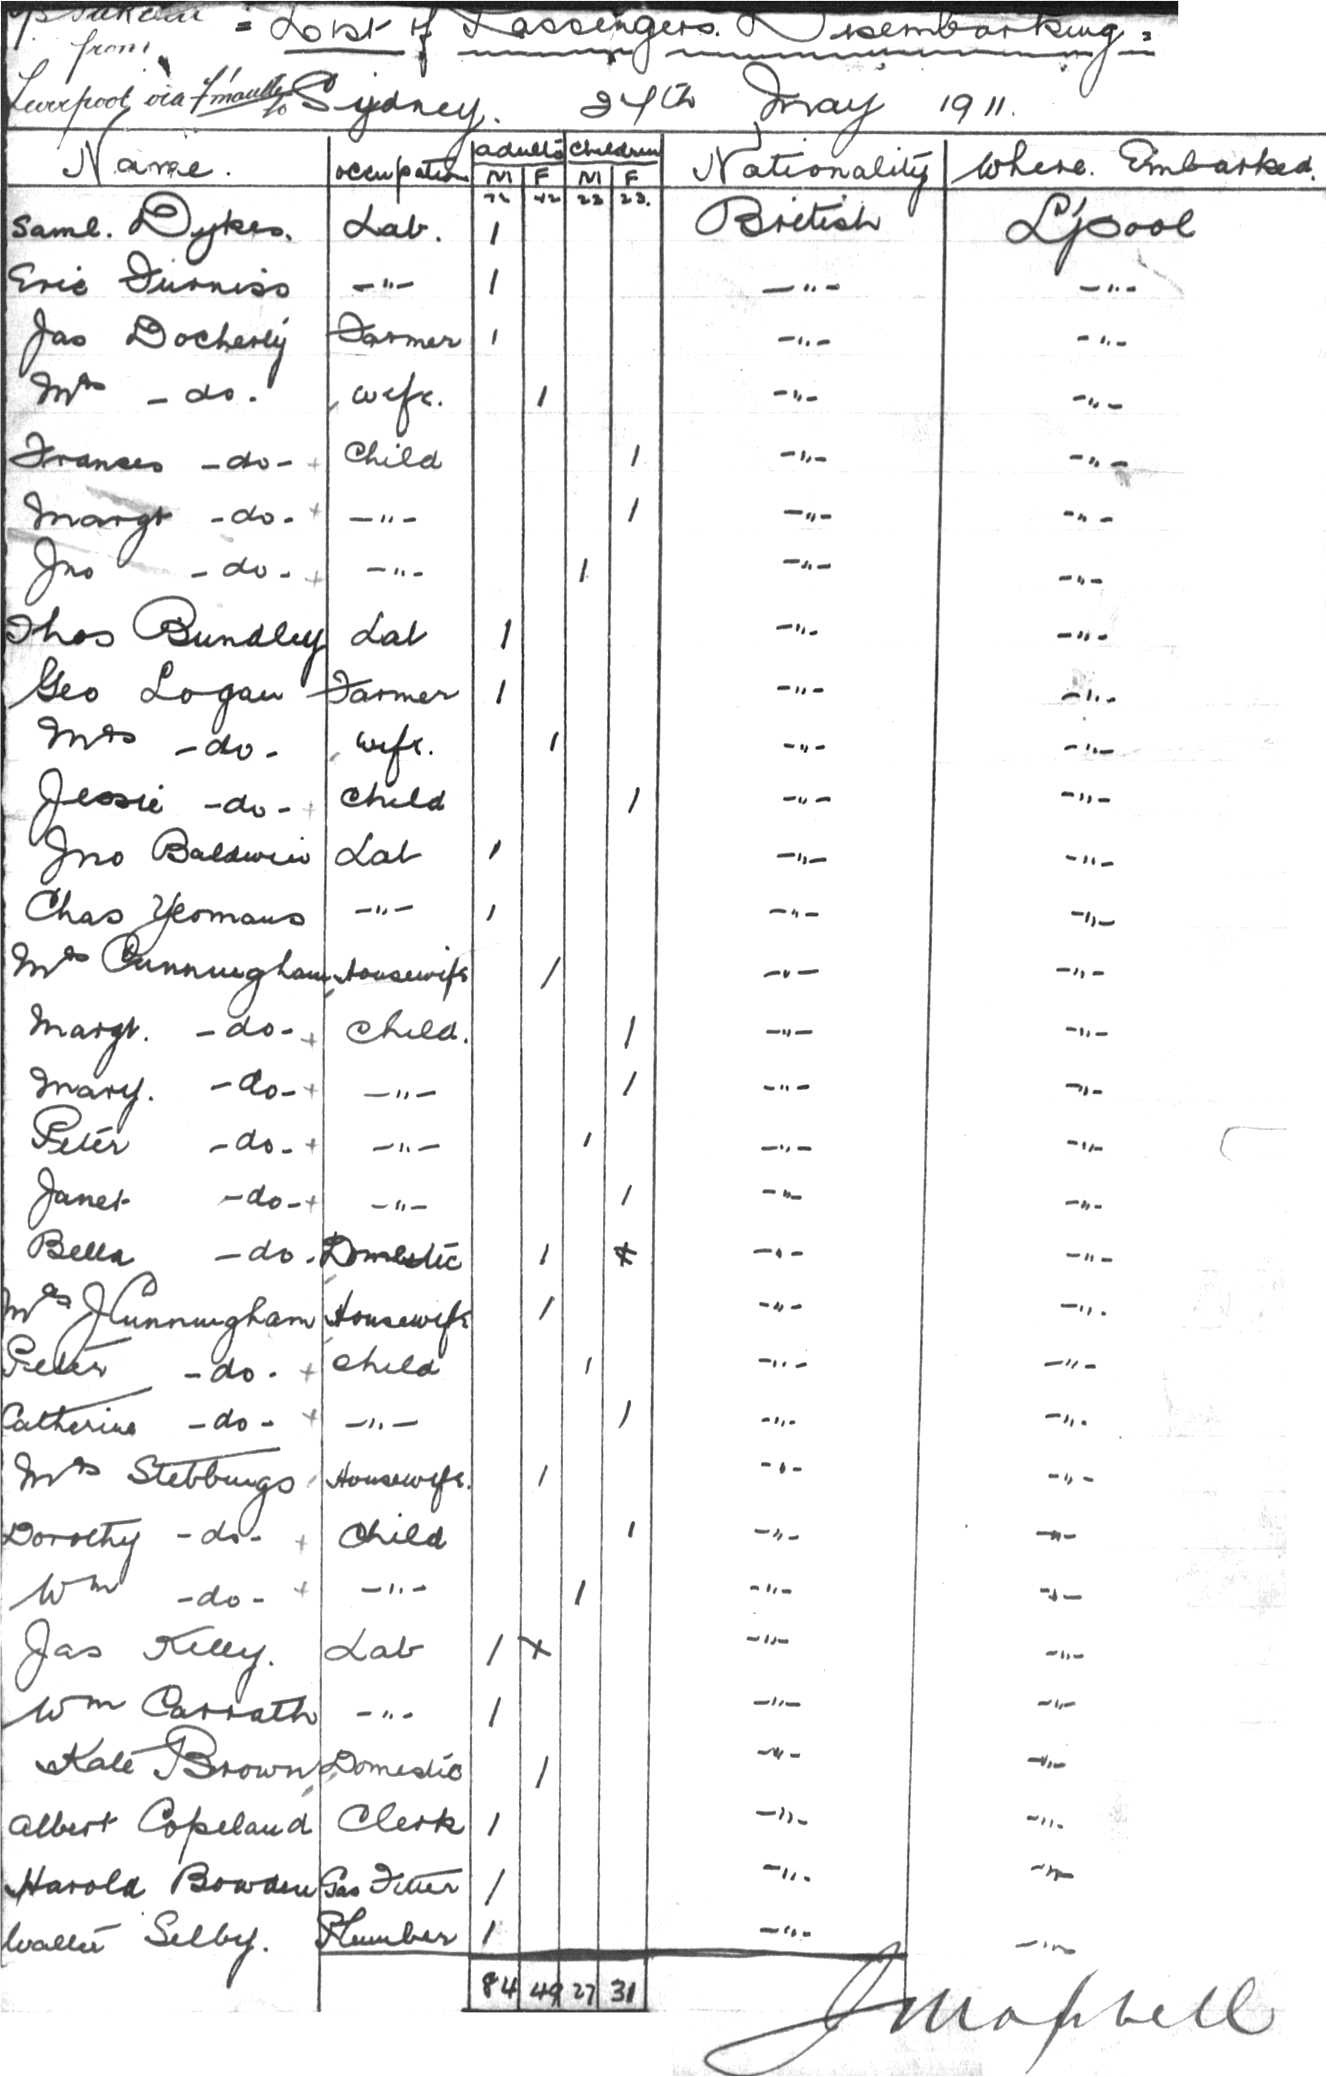 from = List of Passengers. Disembarking =
Liverpool via to Sydney. 24th May 1911.
Name. occupation adults children Nationality where. Embarked.
M F M F
72 42 23 23.
Saml. Dykes. Lab. 1 British L'pool
Eric Furniss -"- 1 -"- -"-
Jas Docherty Farmer 1 -"- -"-
Mrs - do. wife. 1 -"- -"-
Frances - do - + Child 1 -"- -"-
Margt - do - + -"- 1 -"- -"-
Jno - do - + -"- 1 -"- -"-
Thos Bundley Lab 1 -"- -"-
Geo Logan Farmer 1 -"- -"-
Mrs - do - wife. 1 -"- -"-
Jessie - do - + Child 1 -"- -"-
Jno Baldwin Lab 1 -"- -"-
Chas Yeomans -"- 1 -"- -"-
Mrs Cunningham Housewife 1 -"- -"-
Margt. - do - + Child. 1 -"- -"-
Mary. - do - + -"- 1 -"- -"-
Peter - do - + -"- 1 -"- -"-
Janet - do - + -"- 1 -"- -"-
Bella - do. Domestic 1 -"- -"-
Mrs J Cunningham Housewife 1 -"- -"-
Peter - do. + Child 1 -"- -"-
Catherine - do - + -"- 1 -"- -"-
Mrs Stebbings Housewife. 1 -"- -"-
Dorothy - do - + Child 1 -"- -"-
Wm - do - + -"- 1 -"- -"-
Jas Kelly. Lab 1 -"- -"-
Wm Carrath -"- 1 -"- -"-
Kate Brown Domestic 1 -"- -"-
Albert Copeland Clerk 1 -"- -"-
Harold Bowden Gas Fitter 1 -"- -"-
Walter Selby. Plumber 1 -"- -"-
84 49 27 31